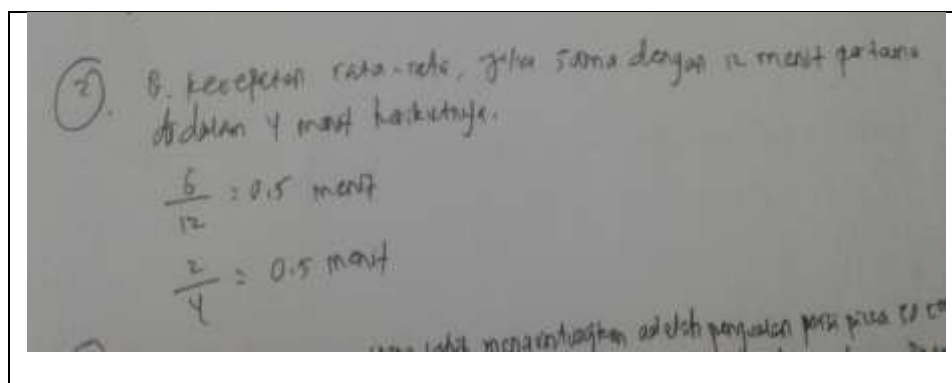 2). B. kecepatan rata-rata, jika sama dengan 12 menit pertama
di dalam 4 menit berikutnya.
6/12 = 0.5 menit
2/4 = 0.5 menit
yang lebih menguntungkan adalah penjualan porsi pizza